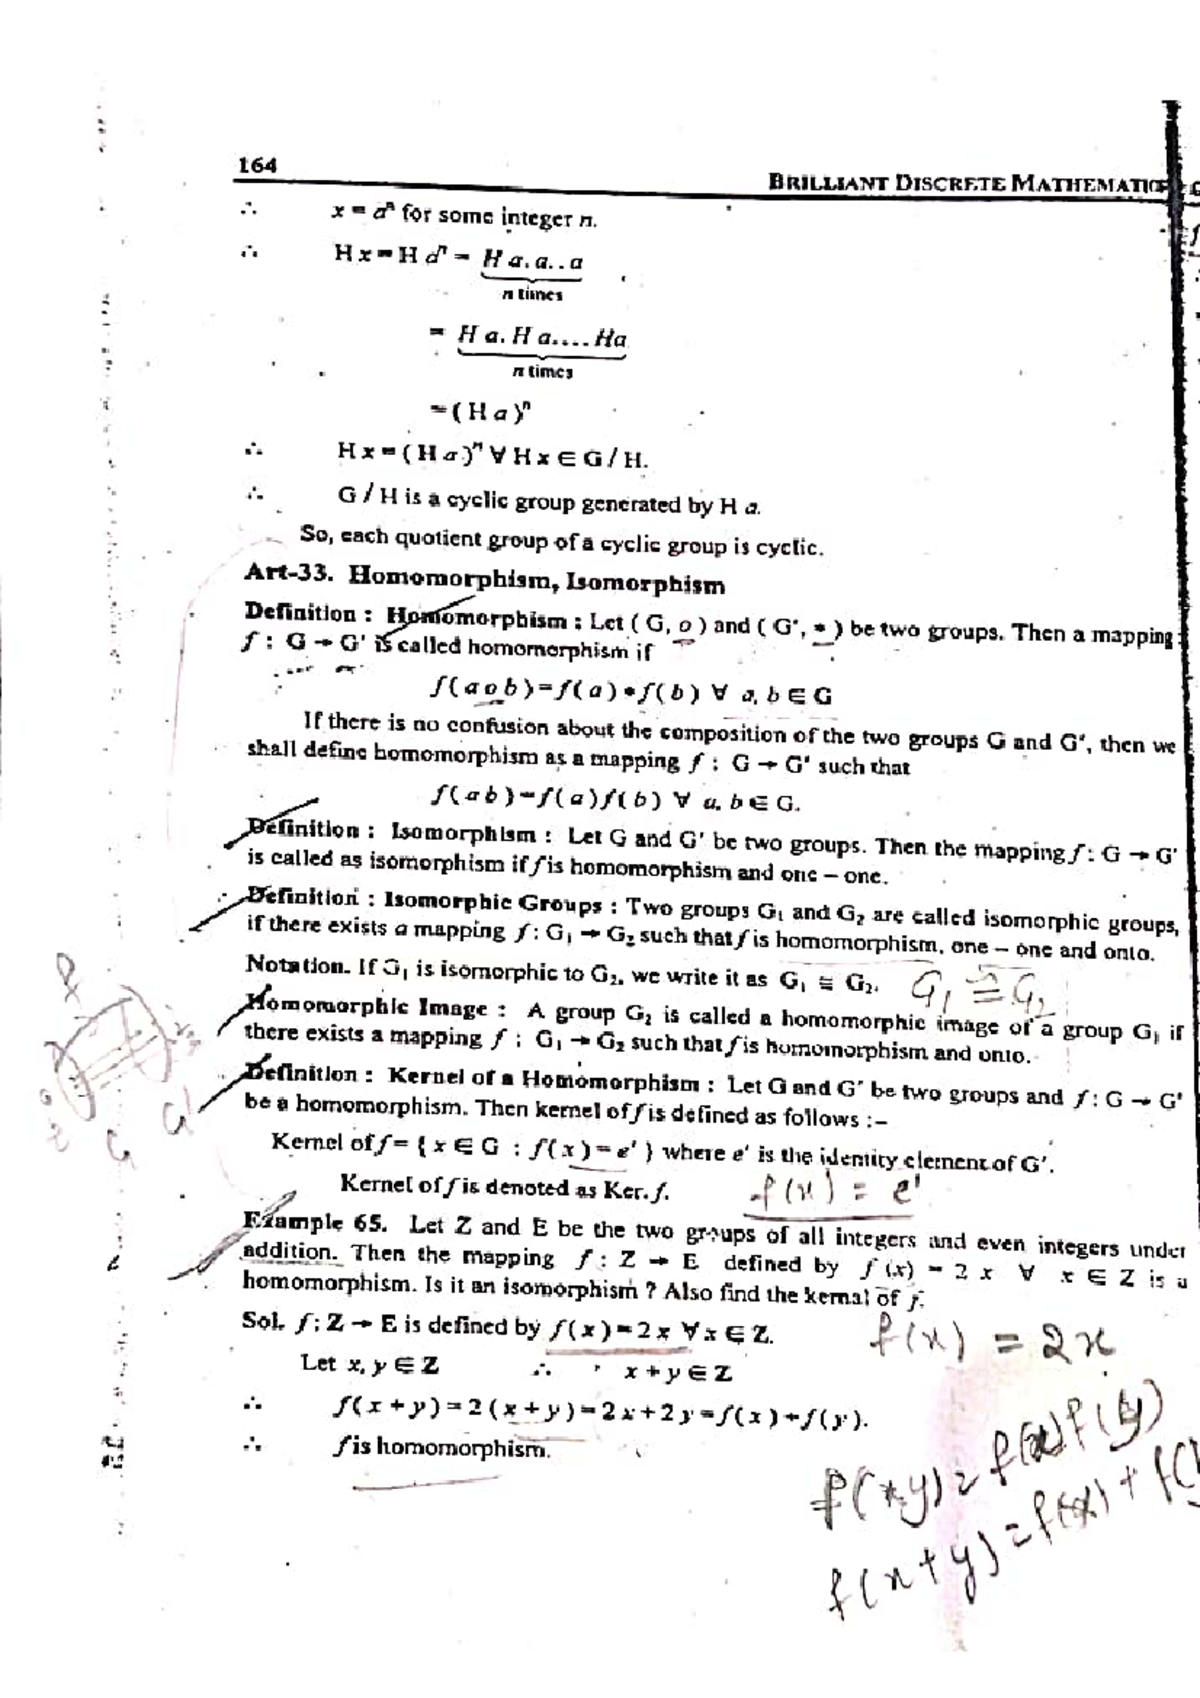 164
BRILLIANT DISCRETE MATHEMATIC
∴ x = aⁿ for some integer n.
∴ H x = H aⁿ = H a. a. . a
n times
= H a. H a.... Ha
n times
= ( H a )ⁿ
∴ H x = ( H a )ⁿ ∀ H x ∈ G / H.
∴ G / H is a cyclic group generated by H a.
So, each quotient group of a cyclic group is cyclic.
Art-33. Homomorphism, Isomorphism
Definition : Homomorphism : Let ( G, o ) and ( G', • ) be two groups. Then a mapping
f : G → G' is called homomorphism if
f( a o b ) = f( a ) • f( b ) ∀ a, b ∈ G
If there is no confusion about the composition of the two groups G and G', then we
shall define homomorphism as a mapping f : G → G' such that
f( a b ) = f( a ) f( b ) ∀ a, b ∈ G.
Definition : Isomorphism : Let G and G' be two groups. Then the mapping f : G → G'
is called as isomorphism if f is homomorphism and one – one.
Definition : Isomorphic Groups : Two groups G₁ and G₂ are called isomorphic groups,
if there exists a mapping f : G₁ → G₂ such that f is homomorphism, one – one and onto.
Notation. If G₁ is isomorphic to G₂, we write it as G₁ ≅ G₂. G₁ ≅ G₂
Homomorphic Image : A group G₂ is called a homomorphic image of a group G₁ if
there exists a mapping f : G₁ → G₂ such that f is homomorphism and onto.
Definition : Kernel of a Homomorphism : Let G and G' be two groups and f : G → G'
be a homomorphism. Then kernel of f is defined as follows :–
G'
G
Kernel of f = { x ∈ G : f( x ) = e' } where e' is the identity element of G'.
Kernel of f is denoted as Ker. f. f(x) = e'
Example 65. Let Z and E be the two groups of all integers and even integers under
addition. Then the mapping f : Z → E defined by f (x) = 2 x ∀ x ∈ Z is a
homomorphism. Is it an isomorphism ? Also find the kernal of f.
Sol. f : Z → E is defined by f( x ) = 2 x ∀ x ∈ Z. f(x) = 2x
Let x, y ∈ Z ∴ x + y ∈ Z
∴ f( x + y ) = 2 ( x + y ) = 2 x + 2 y = f( x ) + f( y ).
∴ f is homomorphism.
f(x y) = f(x) f(y)
f(x + y) = f(x) + f(